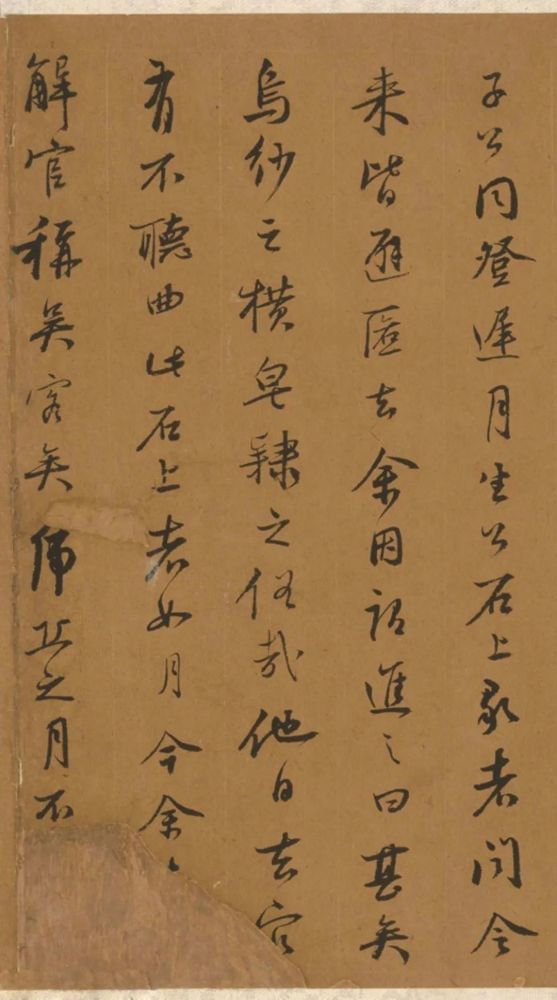 子公同登遲月生公石上歌者聞令
来皆避匿去余因語進之曰甚矣
烏紗之橫皂隸之俗哉他日去官
有不聽曲此石上者如月今余
解官稱吳客矣虎丘之月不